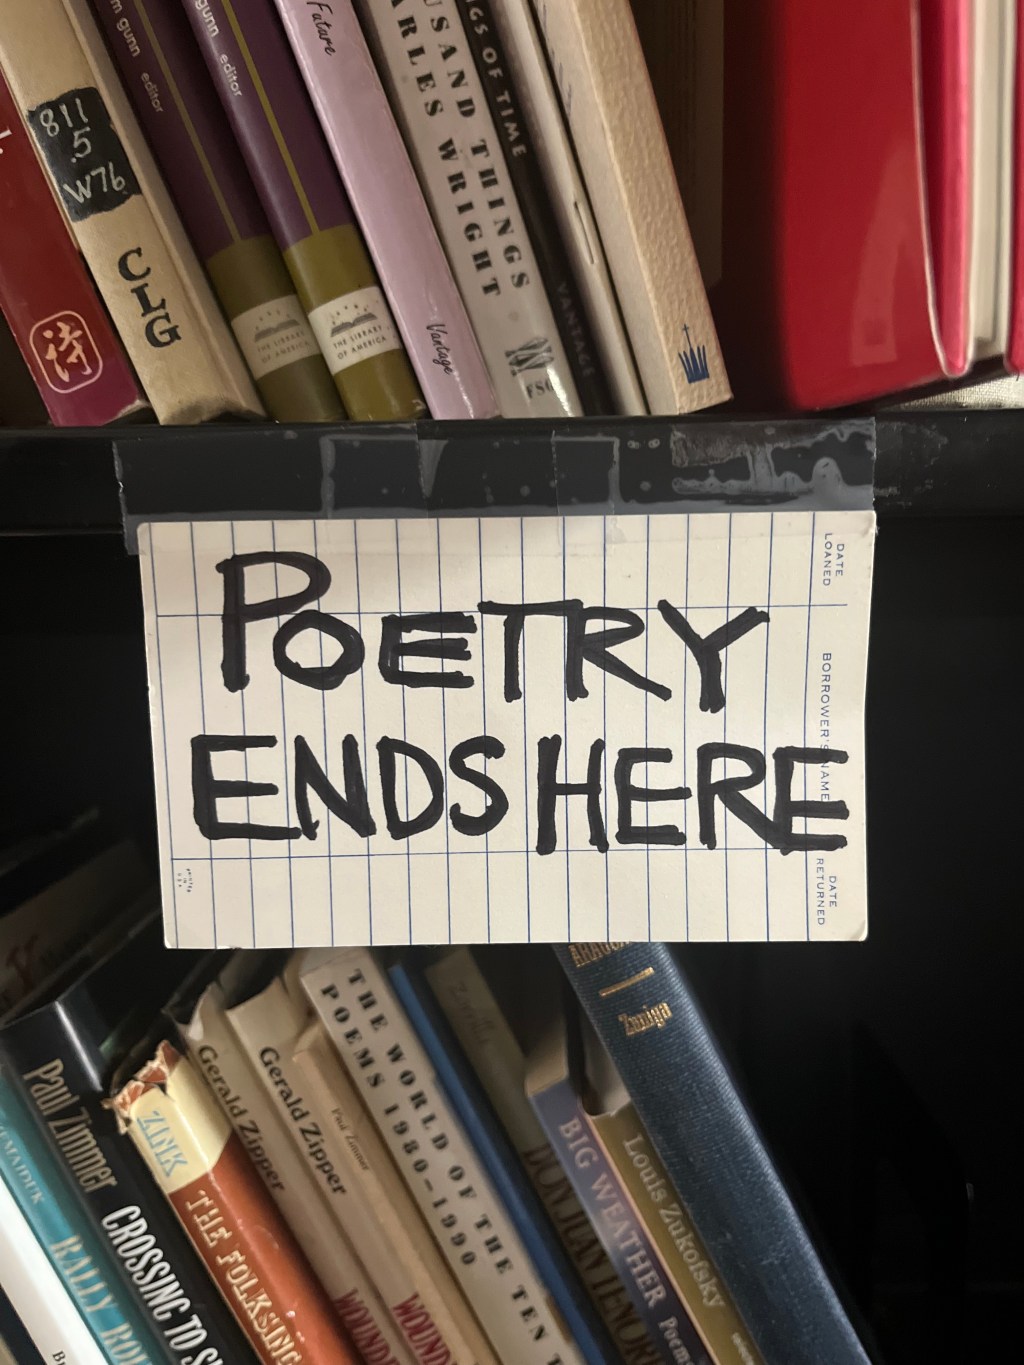 811
.5
W76
CLG
詩
m gunn editor
gunn editor
THE LIBRARY
OF AMERICA
THE LIBRARY
OF AMERICA
Future
Vintage
USAND THINGS
ARLES WRIGHT
FSG
NGS OF TIME
VANTAGE
POETRY
ENDS HERE
DATE
LOANED
BORROWER'S NAME
DATE
RETURNED
PRINTED
IN
U.S.A.
RALLY
Paul Zimmer
CROSSING TO
ZINK
THE FOLKSING
Gerald Zipper
WOUND
Gerald Zipper
WOUND
Paul Zimmer
THE WORLD OF THE TEN
POEMS 1980–1990
DON JUAN TENORI
BIG WEATHER Poems
Louis Zukofsky
Zuniga